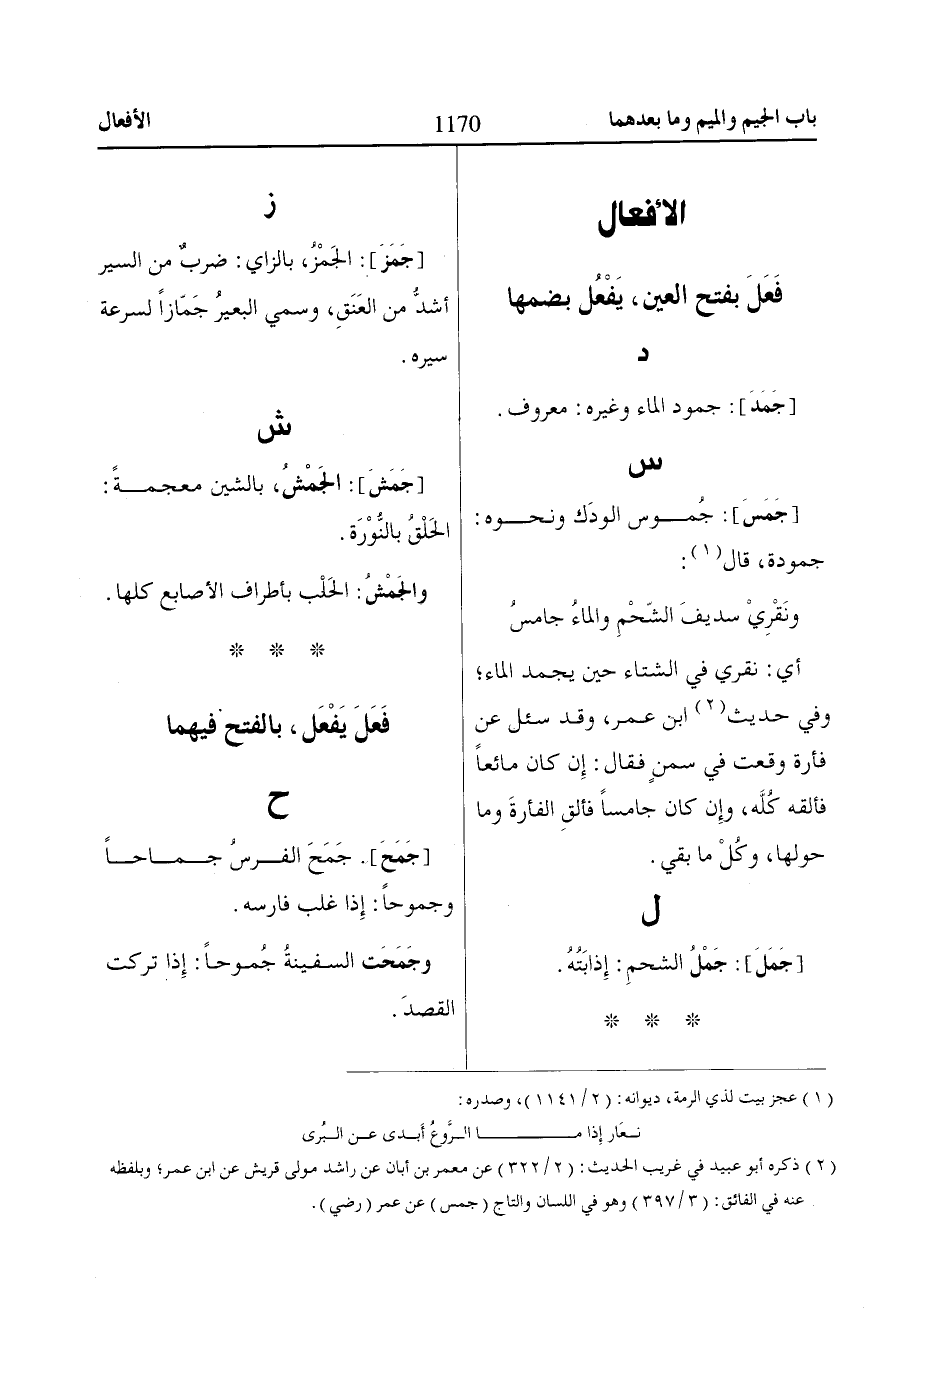 باب الجيم والميم وما بعدهما 1170 الأفعال
الأفعال
فَعَلَ بفتح العين، يَفْعُل بضمها
د
[جَمَدَ]: جمود الماء وغيره: معروف.
س
[جَمَسَ]: جُمـوس الودَك ونحـوه:
جمودة، قال(١):
ونَقْرِيْ سديفَ الشّحْمِ والماءُ جامسُ
أي: نقري في الشتاء حين يجمد الماء؛
وفي حديث(٢) ابن عمر، وقد سئل عن
فأرة وقعت في سمنٍ فقال: إِن كان مائعاً
فألقه كُلَّه، وإِن كان جامساً فألقِ الفأرةَ وما
حولها، وكُلْ ما بقي.
ل
[جَمَلَ]: جَمْلُ الشحمِ: إِذابَتُهُ.
* * *
ز
[جَمَزَ]: الجَمْزُ، بالزاي: ضربٌ من السير
أشدُّ من العَنَقِ، وسمي البعيرُ جَمّازاً لسرعة
سيره.
ش
[جَمَشَ]: الجَمْشُ، بالشين معجمـةً:
الحَلْقُ بالنُّوْرَة.
والجَمْشُ: الحَلْب بأطراف الأصابع كلها.
* * *
فَعَلَ يَفْعَل، بالفتح فيهما
ح
[جَمَحَ]. جَمَحَ الفـرسُ جـمـاحـاً
وجموحاً: إِذا غلب فارسه.
وجَمَحَت السفينةُ جُموحاً: إِذا تركت
القصدَ.
(١) عجز بيت لذي الرمة، ديوانه: (٢/ ١١٤١)، وصدره:
نـعَار إِذا مـا الرَّوعُ أبـدى عـن البُرى
(٢) ذكره أبو عبيد في غريب الحديث: (٢/ ٣٢٢) عن معمر بن أبان عن راشد مولى قريش عن ابن عمر؛ وبلفظه
عنه في الفائق: (٣/ ٣٩٧) وهو في اللسان والتاج (جمس) عن عمر (رضي).